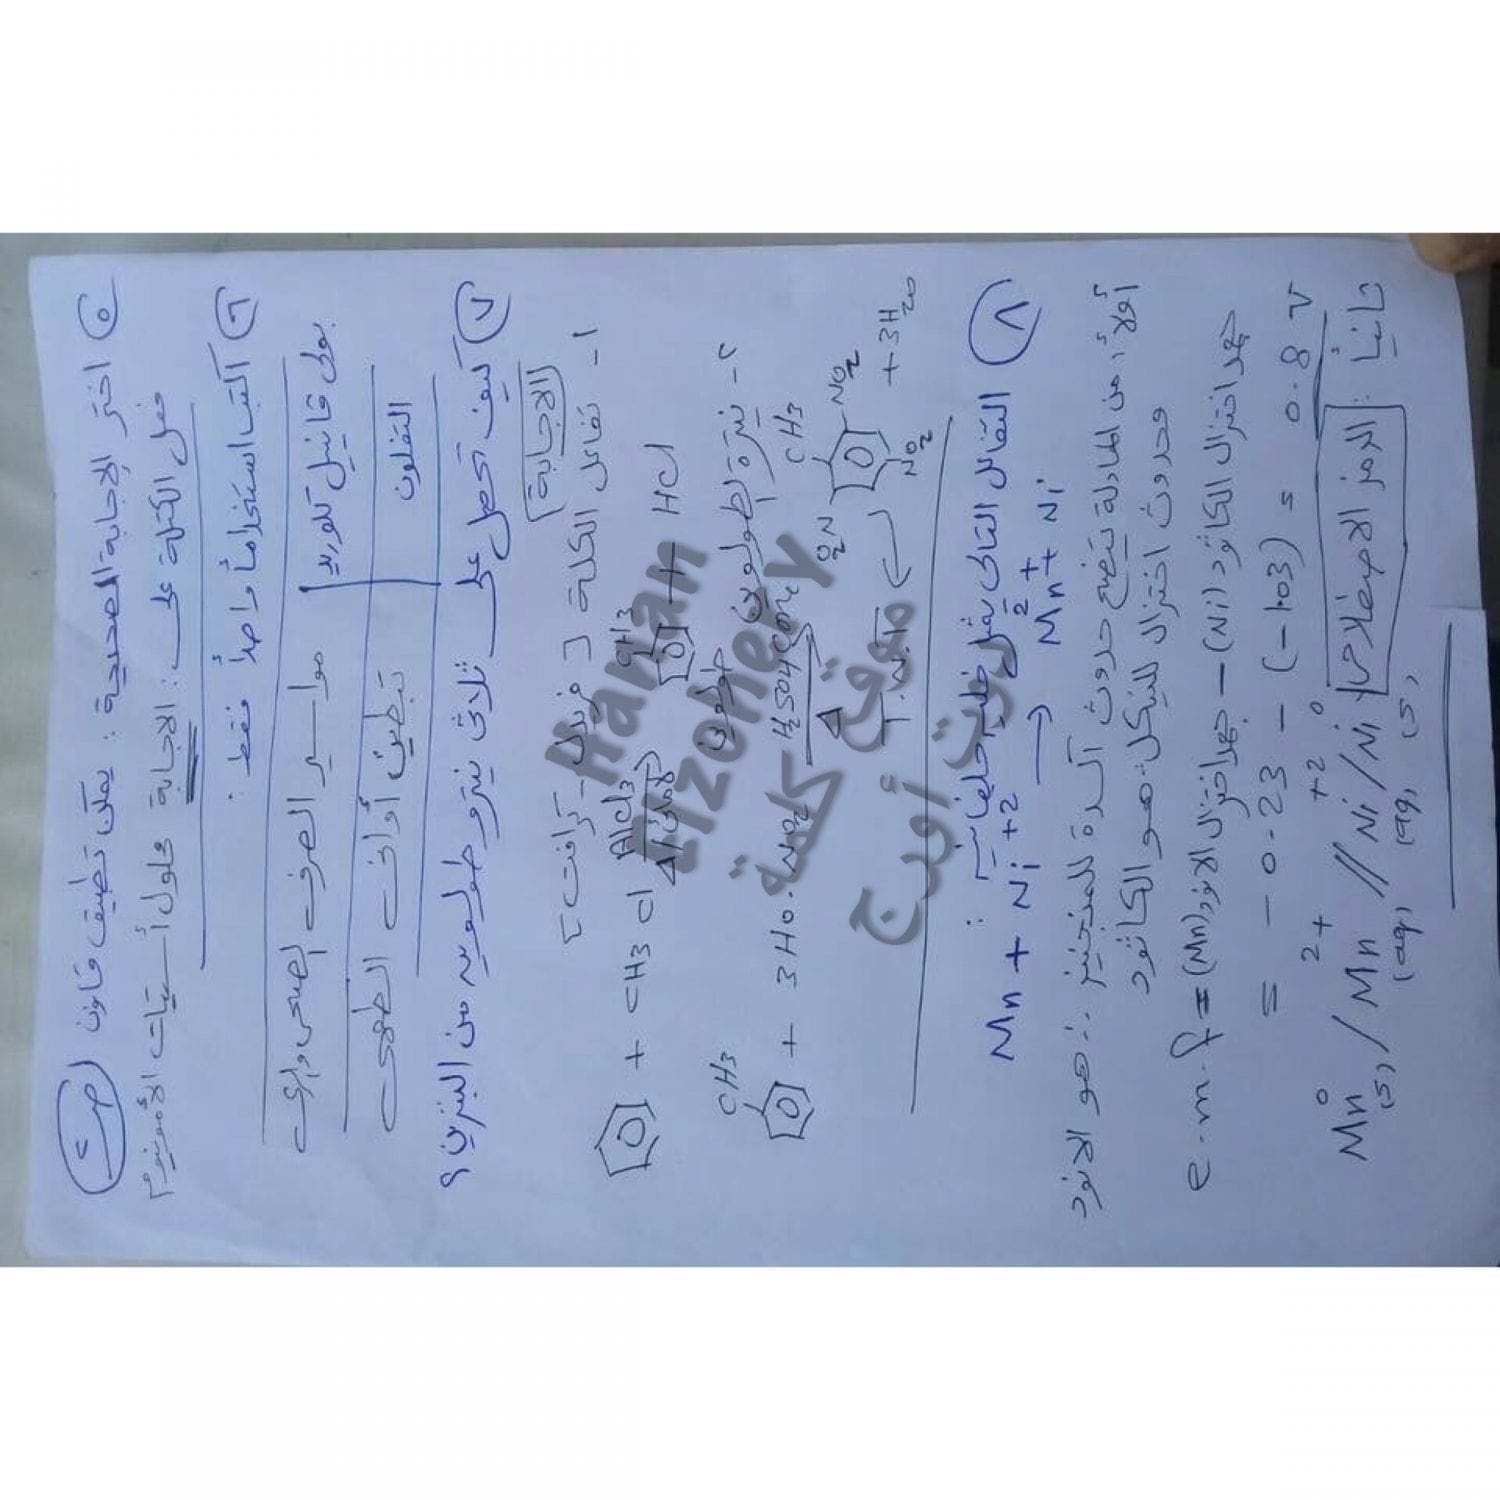 ص٤
٥ اختر الإجابة الصحيحة : يمكن تطبيق قانون
فعل الكتلة على : الاجابة محلول أسيتات الأمونيوم
٦ اكتب استخداماً واحداً فقط :
بولى فاينيل كلوريد | مواسير الصرف الصحى والرى
التفلون | تبطين أوانى الطهى
٧ كيف تحصل على ثلاثى نيترو طولوين من البنزين ؟
الاجابة
١- تفاعل الكلة [ فريدل - كرافت ]
+ CH3 Cl AlCl3 / لامائى Δ CH3 + HCl
طولوين
٢- نيترة الطولوين
CH3 + 3 HO.NO2 H2SO4 conc Δ CH3 O2N NO2 NO2 + 3H2O
T.N.T
٨ التفاعل التالى يمثل خلية جلفانية :
Mn + Ni+2 → Mn2+ + Ni
أولاً : من المعادلة يتضح حدوث أكسدة للمنجنيز ∴ هو الانود
وحدوث اختزال للنيكل ∴ هو الكاثود
e.m.f = جهد اختزال الكاثود (Ni) - جهد اختزال الانود (Mn)
= - 0.23 - (-1.03) = 0.8 V
ثانياً : الرمز الاصطلاحى
Mn0(s) / Mn2+(aq) // Ni+2(aq) / Ni0(s)
Hanan
Elzohery
موقع كلمة
دوت أورج